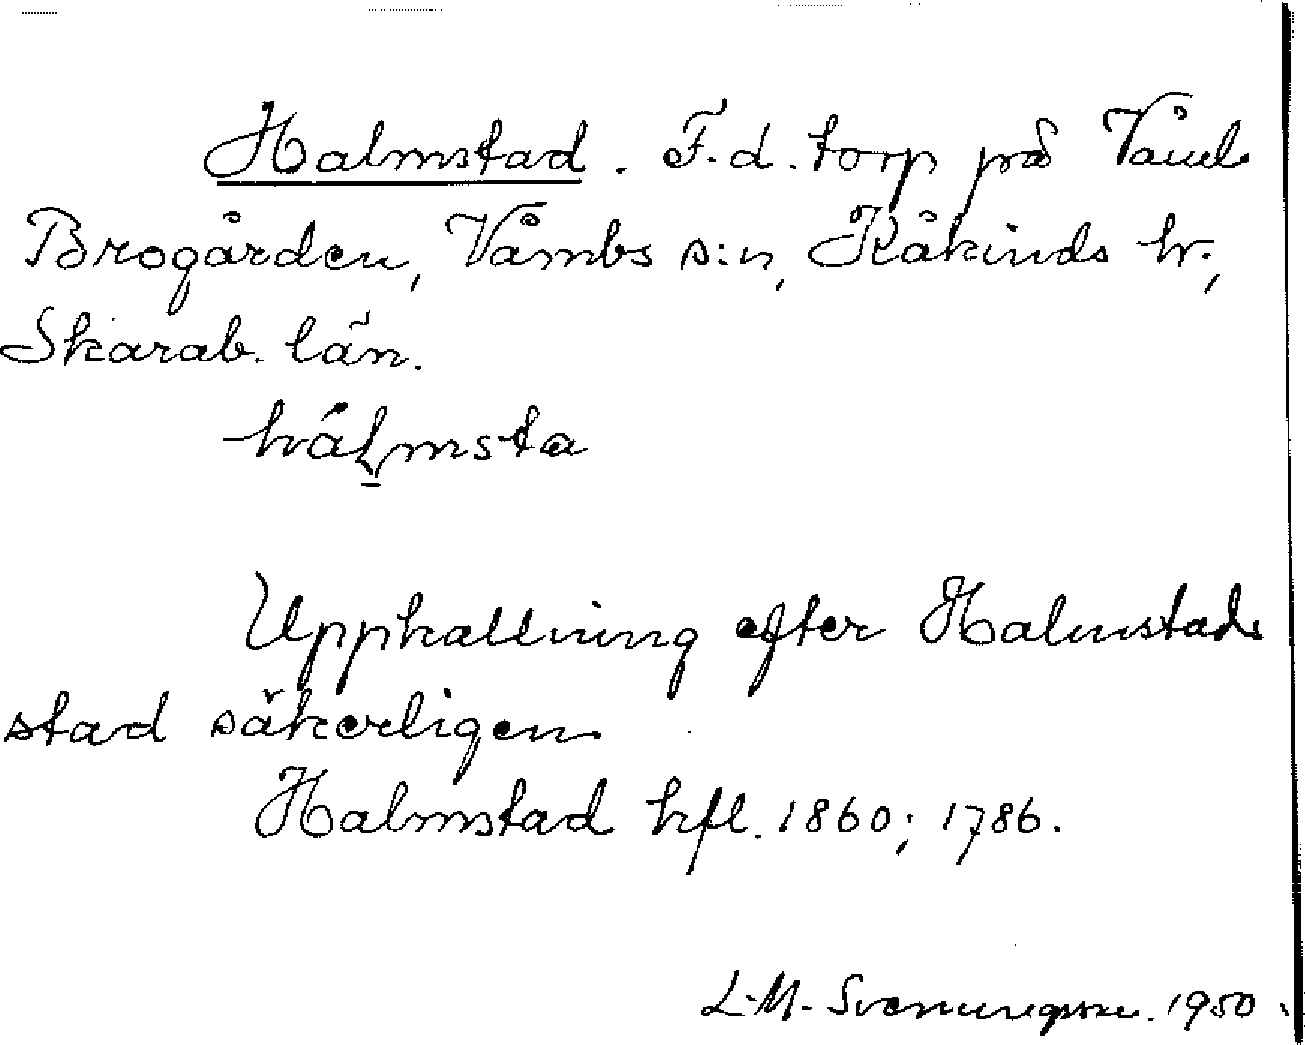 Halmstad. F.d. torp på Våmb
Brogården, Våmbs s:n, Kåkinds hr,
Skarab. län.
hálmsta
Uppkallning efter Halmstads
stad säkerligen.
Halmstad hfl. 1860; 1786.
L-M. Svenungsson. 1950.